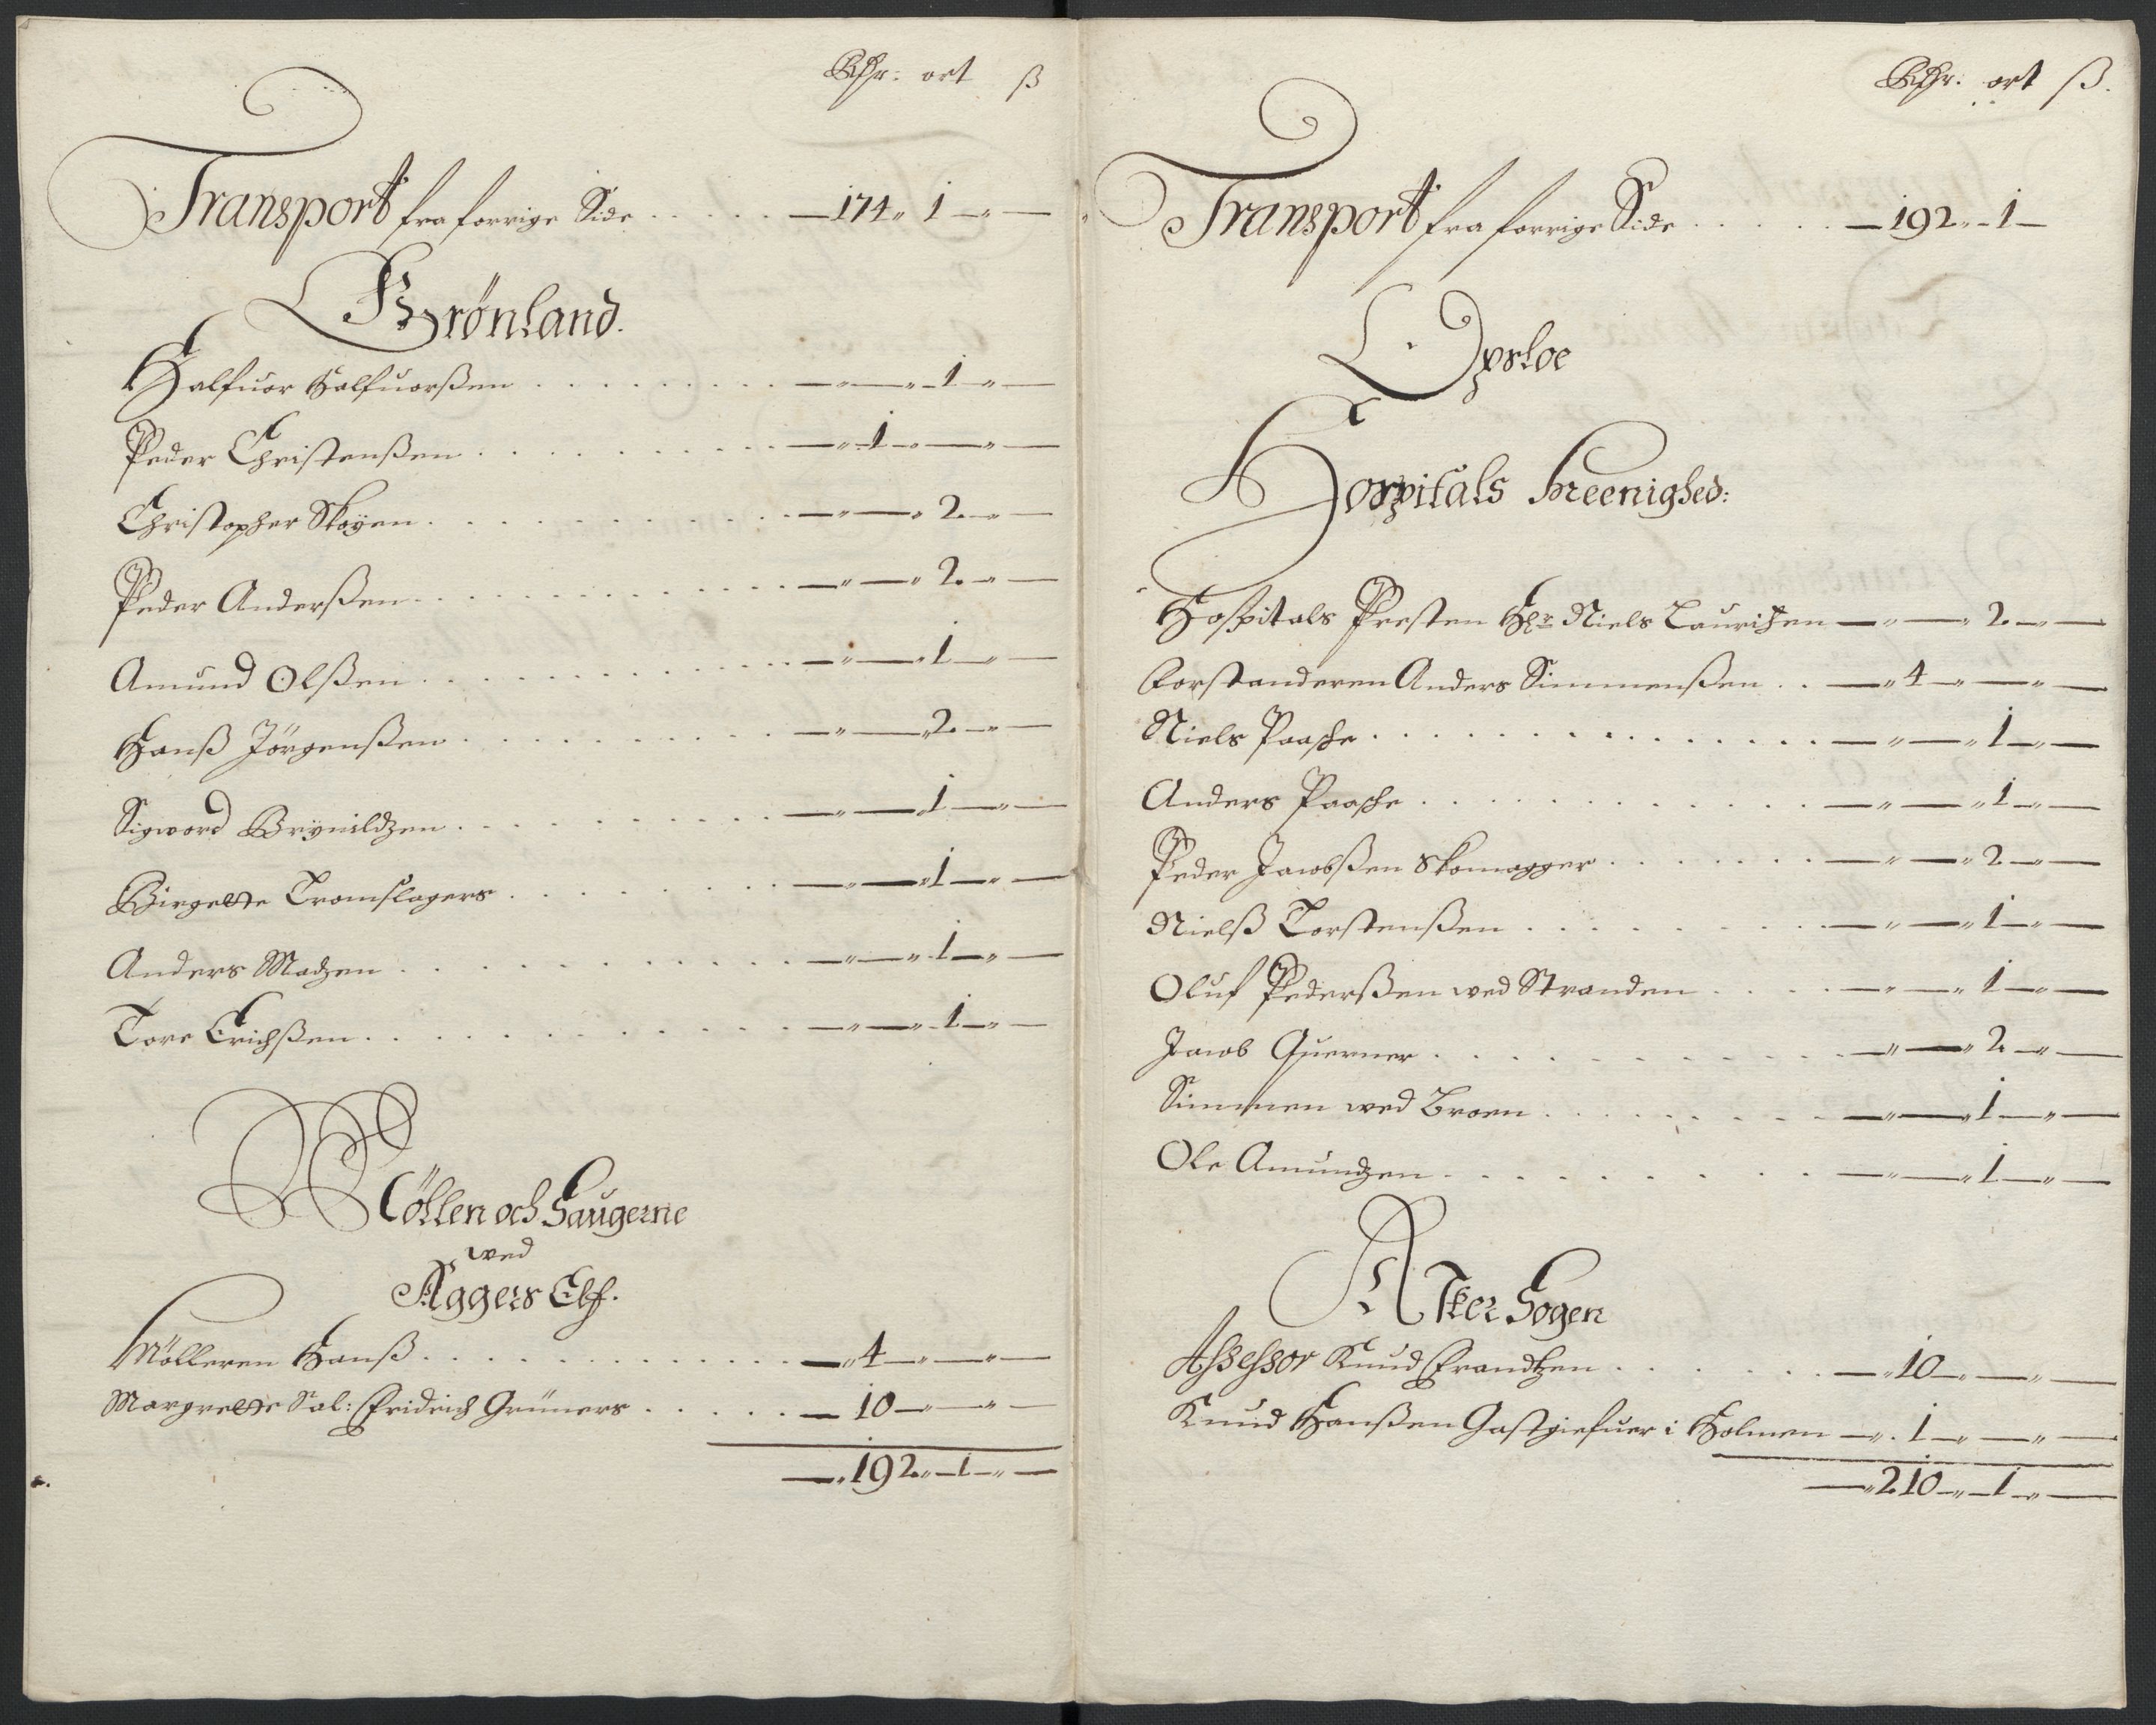 Rdr: ort ß
Transport fra forrige Side . . . . . — 174 „ 1 — „ —
Grönland.
Halfuor Halfuorßen . . . . . . . . . — „ — „ 1 „ —
Peder Christenßen . . . . . . . . . — „ 1 — „ — „ —
Christopher Skøyen . . . . . . . . . — „ — „ 2 — „ —
Peder Anderßen . . . . . . . . . — „ — „ 2 — „ —
Amund Olßen . . . . . . . . . — „ — „ 1 — „ —
Hanß Jörgenßen . . . . . . . . . — „ — „ 2 — „ —
Sigword Brynildzen . . . . . . . . . — „ — „ 1 — „ —
Birgette Tromslagers . . . . . . . . . — „ — „ 1 — „ —
Anders Madzen . . . . . . . . . — „ — „ 1 — „ —
Tore Erichßen . . . . . . . . . — „ — „ 1 — „ —
Möllen och Saugerne
wed
Aggers Elf.
Mölleren Hanß . . . . . . . . . — „ 4 — „ — „ —
Margrette Sal: Fridrich Grüners . . . . . — 10 — „ — „ —
— „ 192 „ — 1 — „ —
Rdr: ort ß.
Transport fra forrige Side . . . . . — 192 „ — 1 —
Opsloe
Hospitals Meenighed:
Hospitals Presten Hr Niels Lauritzen — „ — „ 2 — „ —
Forstanderen Anders Simmenßen . . — „ 4 — „ — „ —
Niels Paasche . . . . . . . . . — „ — „ 1 — „ —
Anders Paasche . . . . . . . . . — „ — „ 1 — „ —
Peder Jacobßen Skomagger . . . . . . — „ — „ 2 — „ —
Nielß Torstenßen . . . . . . . . . — „ — „ 1 — „ —
Oluf Pederßen wed Stranden . . . . — „ — „ 1 — „ —
Jacob Querner . . . . . . . . . — „ — „ 2 — „ —
Simmen wed Broen . . . . . . . . . — „ — „ 1 — „ —
Ole Amundzen . . . . . . . . . — „ — „ 1 — „ —
Aker Sogen
Assessor Knud Frandtzen . . . . . . — „ 10 — „ — „ —
Knud Hanßen Gastgiefuer i Holmen — „ 1 — „ — „ —
— „ 210 — „ — 1 — „ —